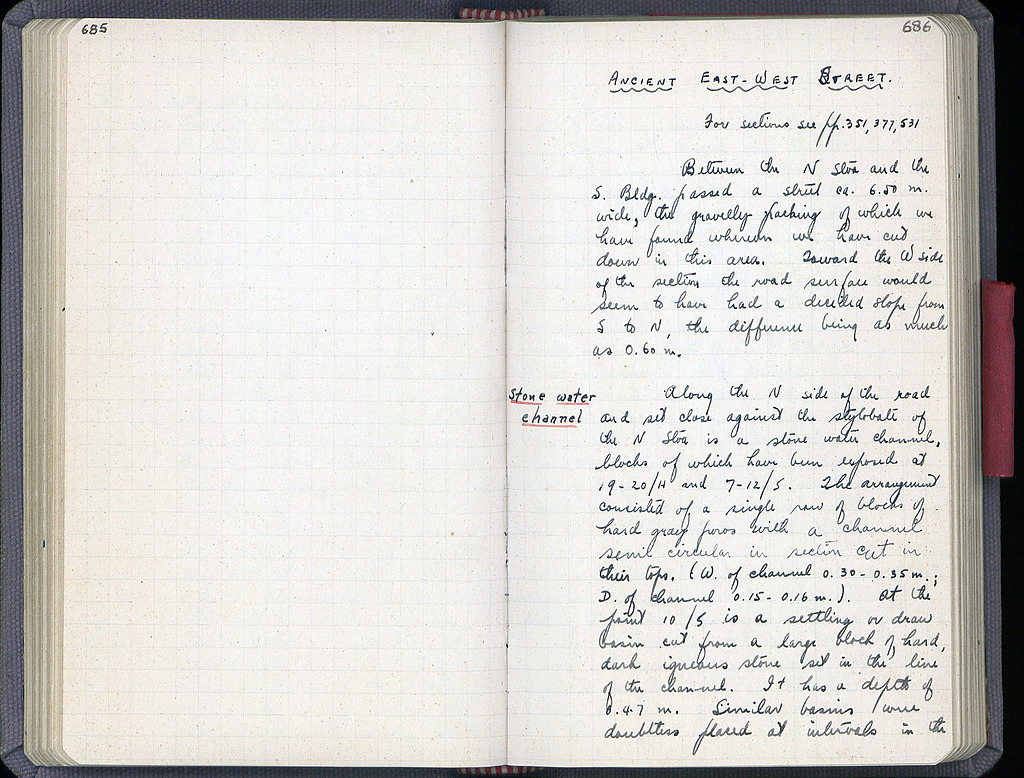 685
686
ANCIENT EAST-WEST STREET.
For sections see pp. 351, 377, 531
Between the N Stoa and the
S. Bldg. passed a street ca. 6.50 m.
wide, the gravelly packing of which we
have found wherever we have cut
down in this area. Toward the W side
of the section the road surface would
seem to have had a decided slope from
S to N, the difference being as much
as 0.60 m.
Stone water
channel
Along the N side of the road
and set close against the stylobate of
the N Stoa is a stone water channel,
blocks of which have been exposed at
19-20/H and 7-12/S. The arrangement
consisted of a single row of blocks of
hard gray poros with a channel
semi circular in section cut in
their tops. (W. of channel 0.30-0.35 m.;
D. of channel 0.15-0.16 m.). At the
point 10/S is a settling or draw
basin cut from a large block of hard,
dark igneous stone set in the line
of the channel. It has a depth of
0.47 m. Similar basins were
doubtless placed at intervals in the